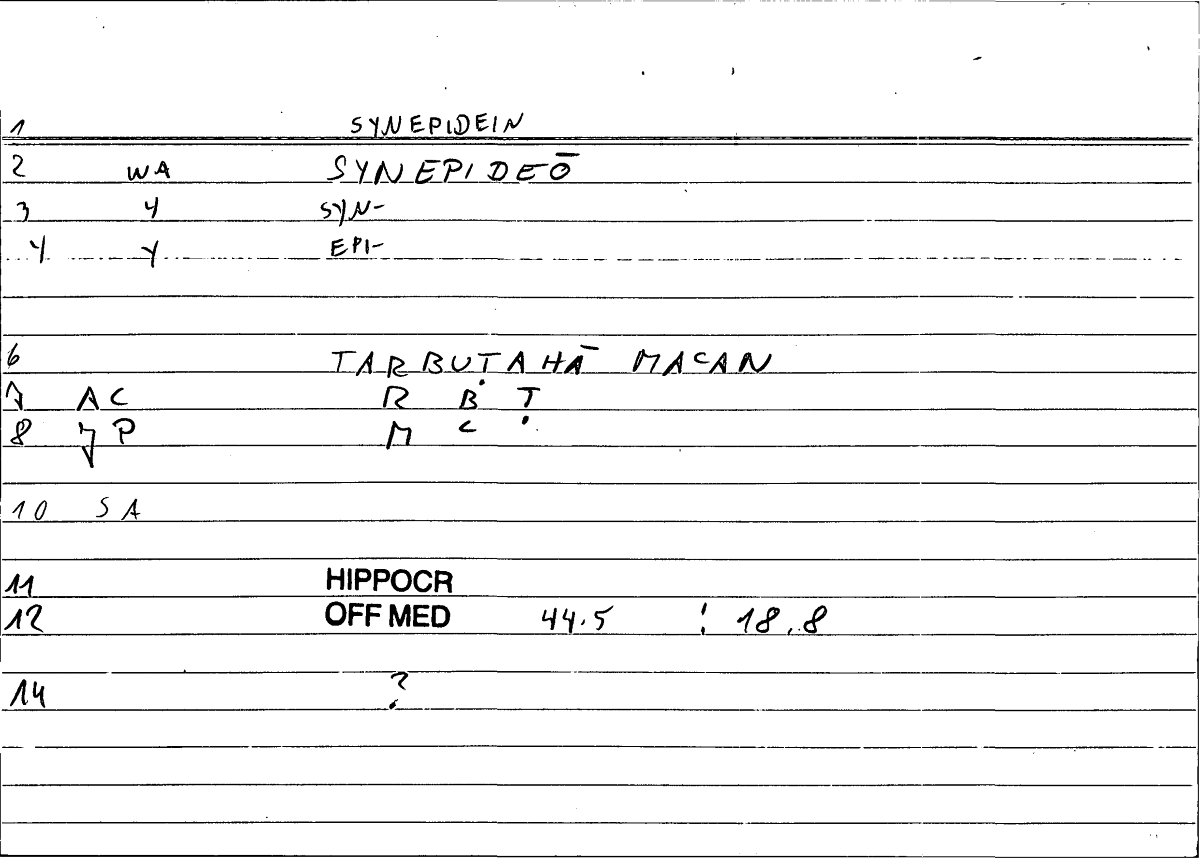 1 SYNEPIDEIN
2 WA SYNEPIDEŌ
3 Y SYN-
4 Y EPI-
6 TARBUṬAHĀ MAʿAN
7 AC R Ḅ T
8 P M ʿ
10 SA
11 HIPPOCR
12 OFF MED 44.5 : 18.8
14 ?